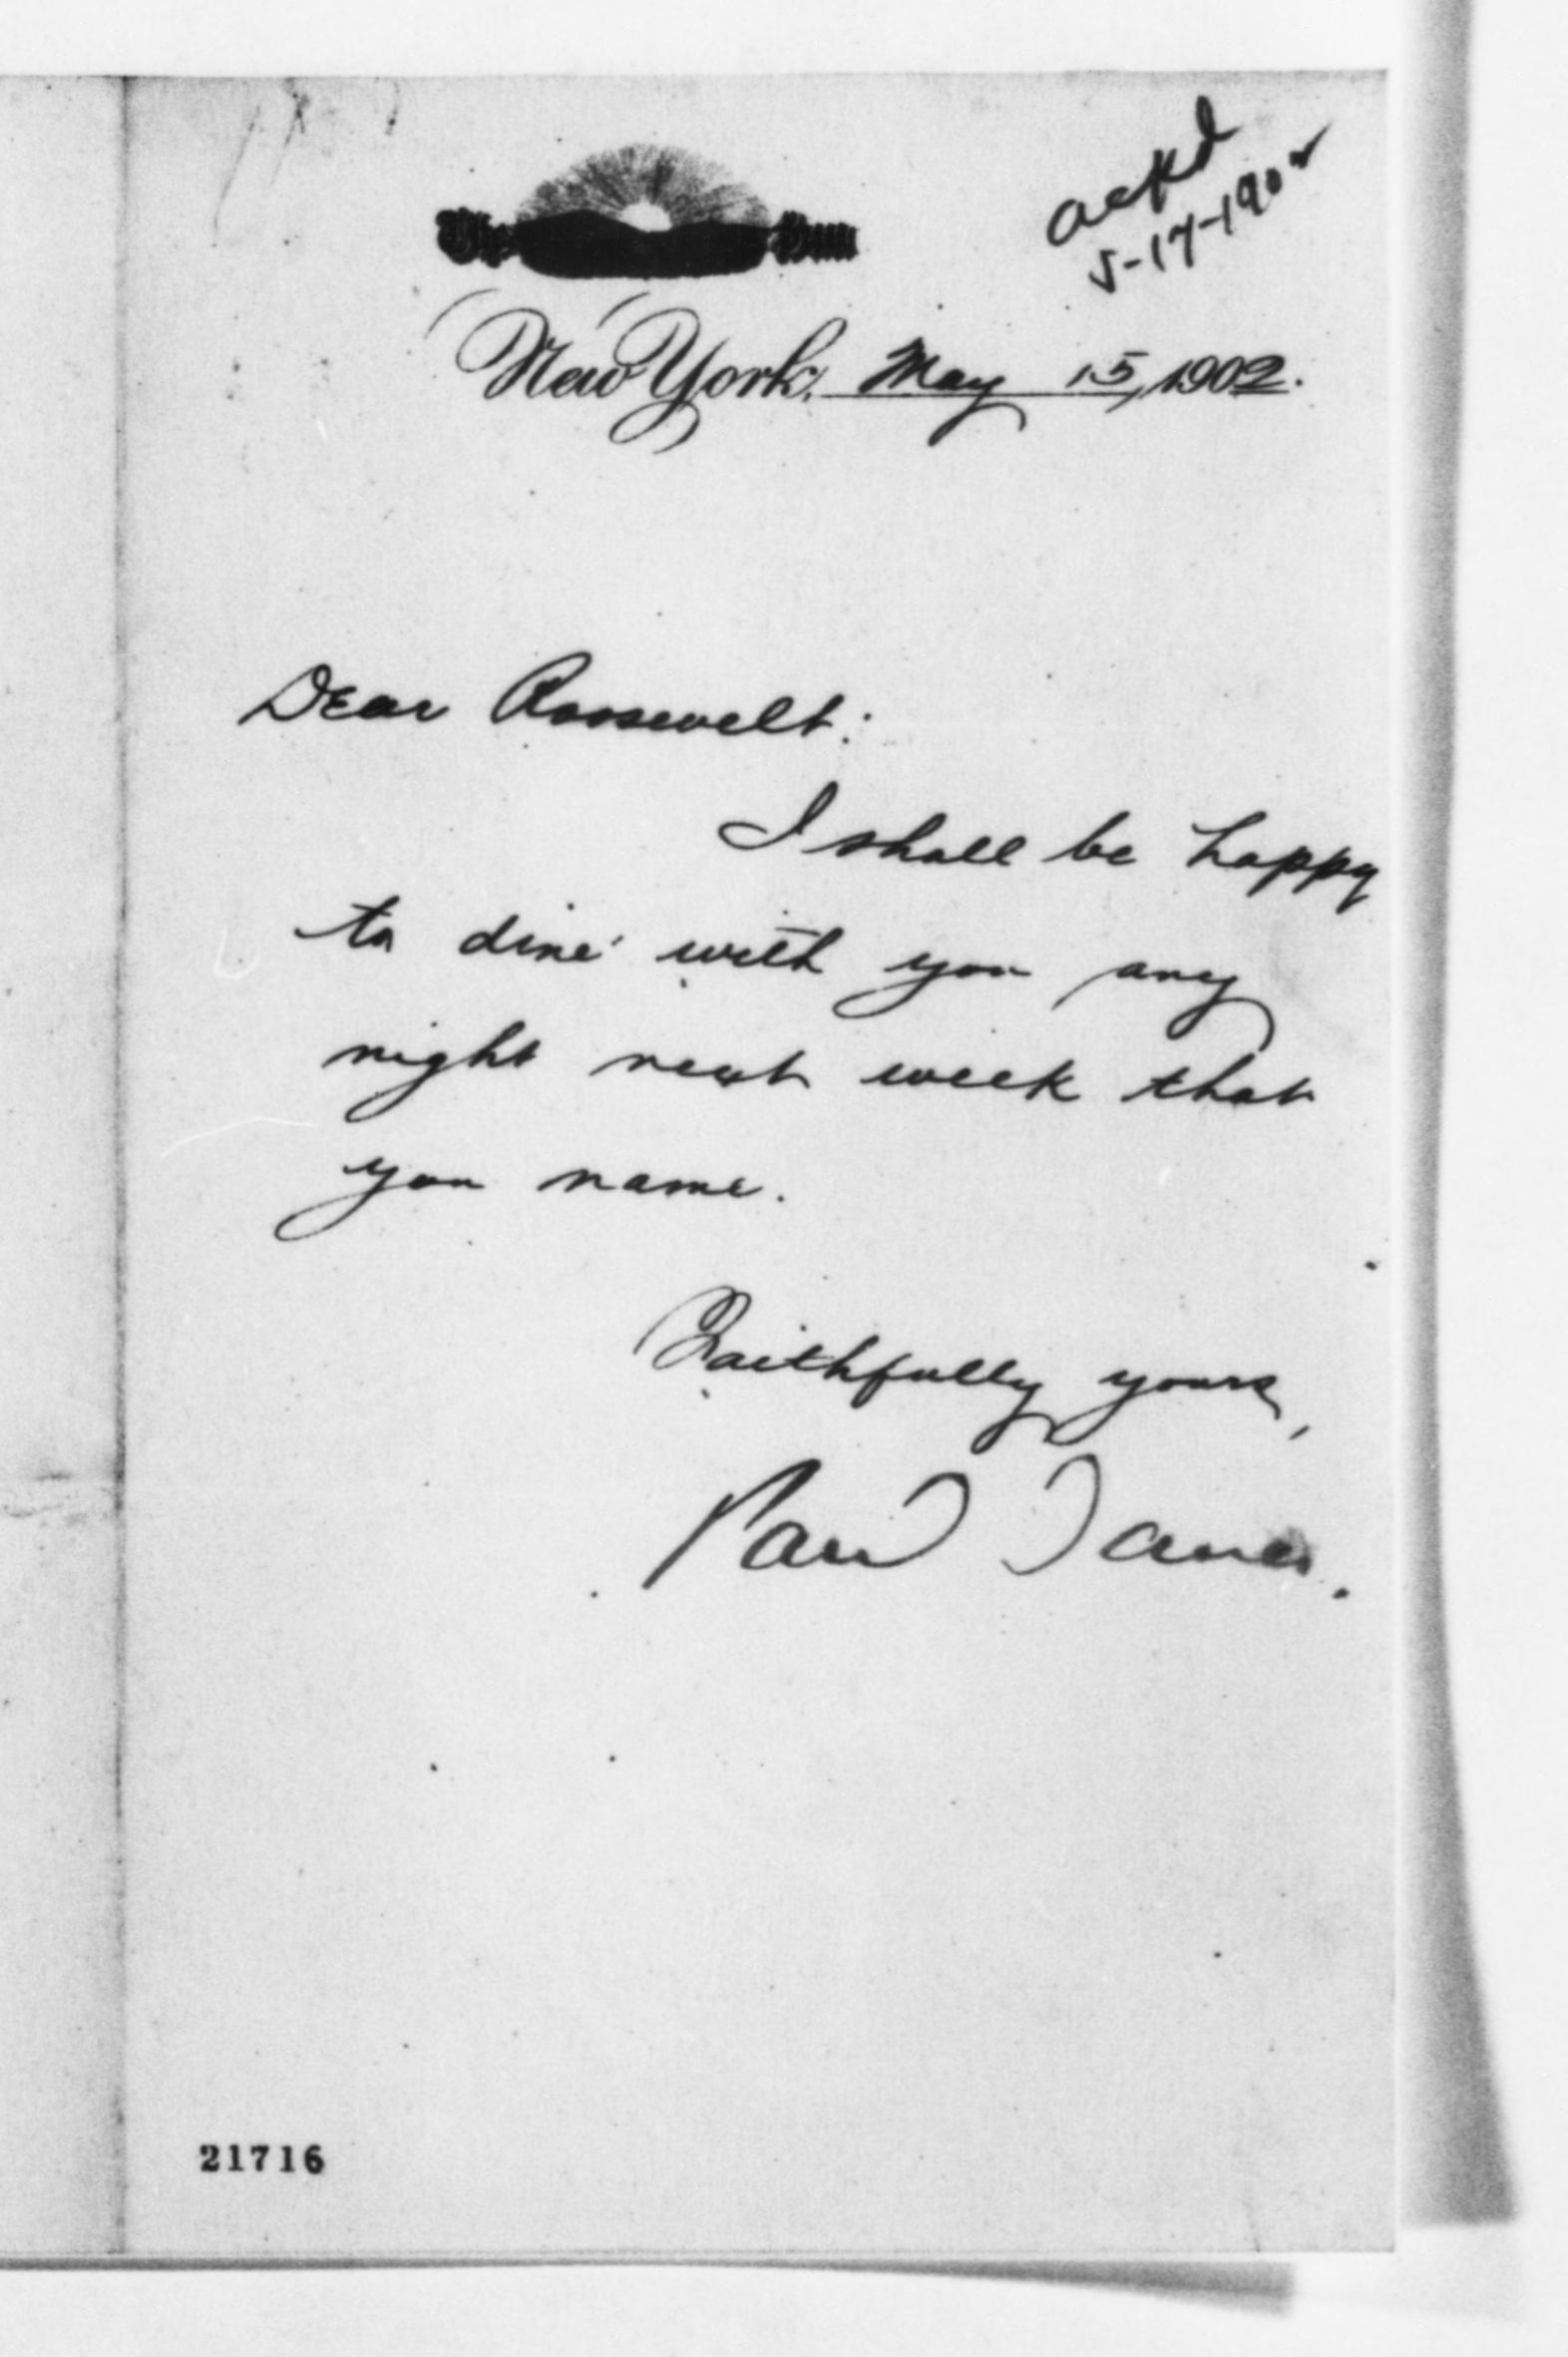 The Sun
ackd
5-17-1902
New York, May 15, 1902.
Dear Roosevelt:
I shall be happy
to dine with you any
night next week that
you name.
Faithfully yours,
Paul Dana.
21716